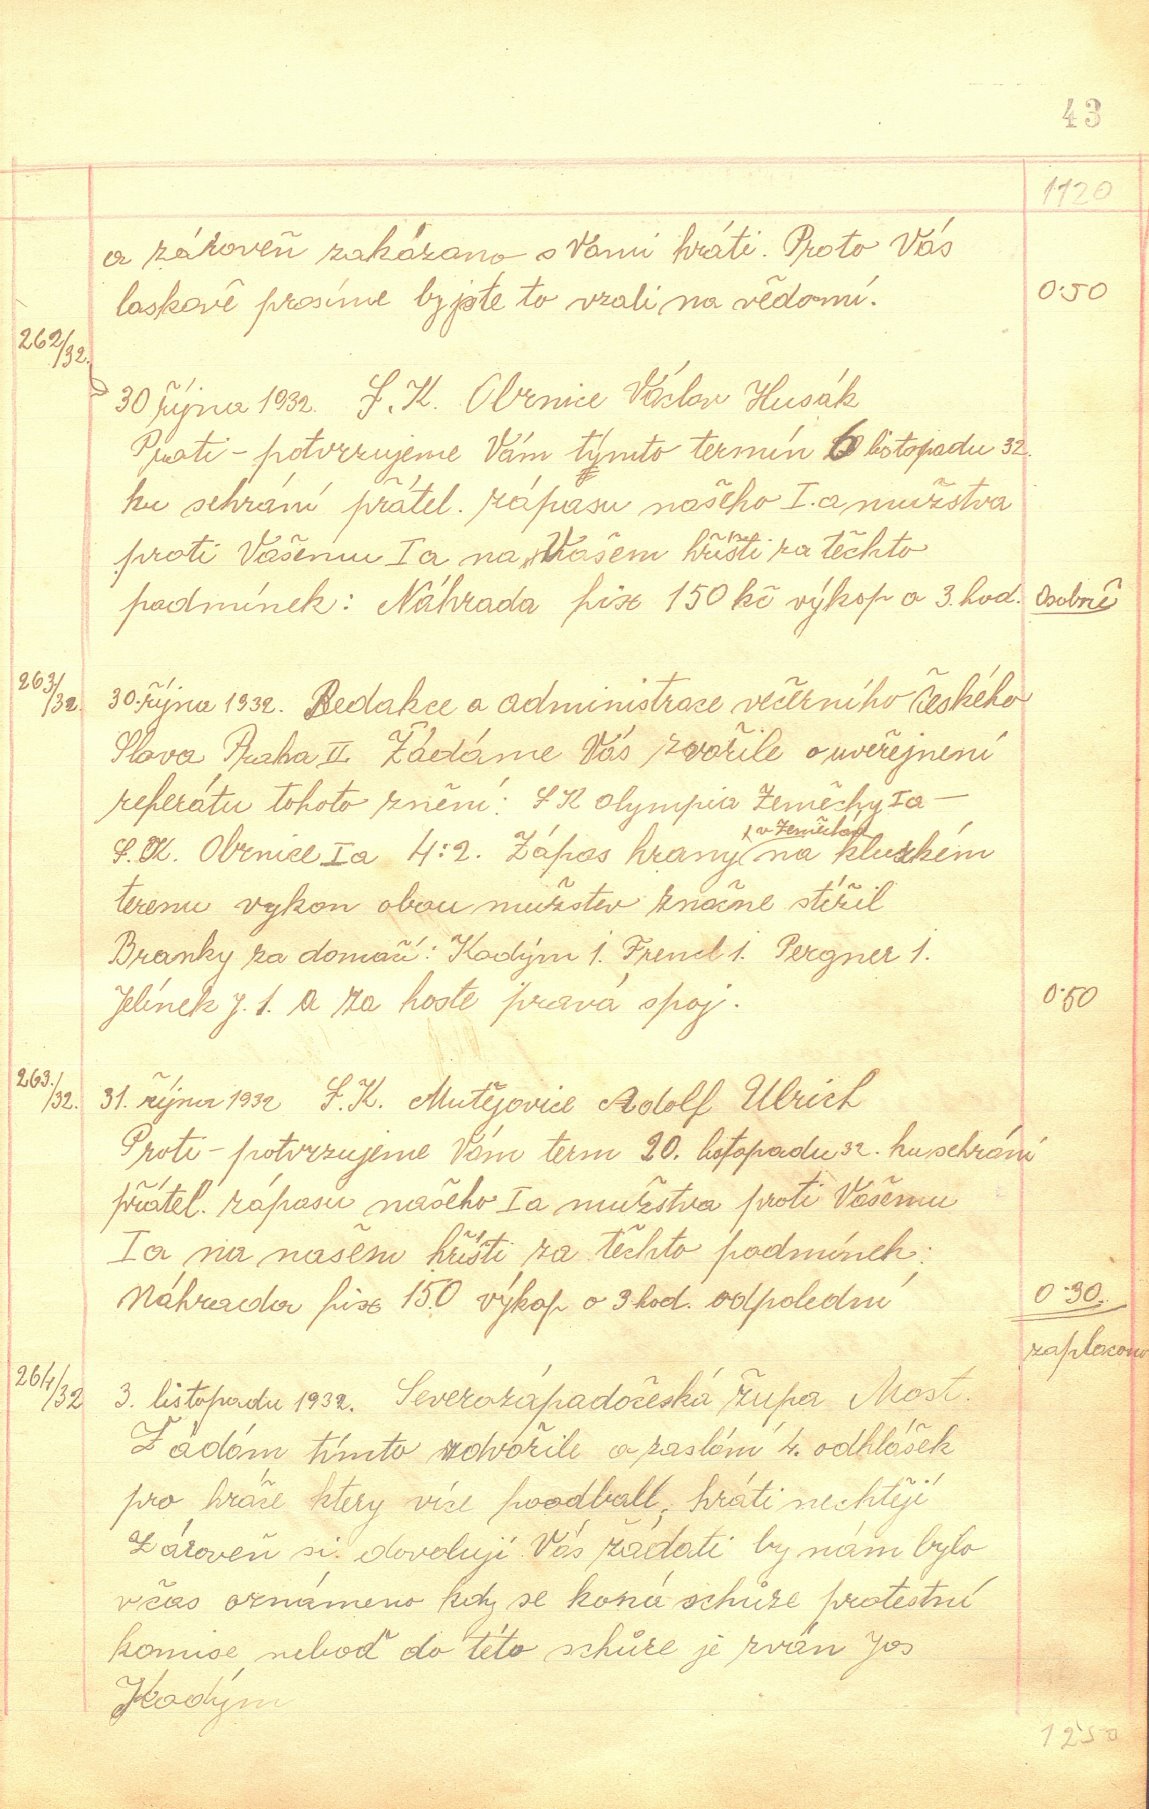 43
1120
a zároveň zakázano s Vámi hráti. Proto Vás
laskavě prosíme by jste to vzali na vědomí. 0·50
262/32.
30 října 1932. S.K. Obrnice Václav Husák
Proti - potvrzujeme Vám týmto termín 6 listopadu 32.
ku sehrání přátel. zápasu našeho I.a mužstva
proti Vašemu Ia na Vašem hřišti za těchto
podmínek: Náhrada fix 150 kč výkop o 3. hod. Osobně
263/32. 30. října 1932. Redakce a administrace večerního Českého
Slova Praha II. Žádáme Vás zvořile o uveřejnení
referátu tohoto znění: S K Olympia Zeměchy Ia —
v Zeměchách
S.K. Obrnice Ia 4:2. Zápas hraný na kluzkém
terenu vykon obou mužstev značne stížil
Branky za domací: Kadým 1. Frencl 1. Pergner 1.
Jelínek J. 1. a za hoste pravá spoj. 0·50
263./32. 31. října 1932 S.K. Mutějovice Adolf Ulrich
Proti - potvrzujeme Vám term 20. listopadu 32. ku sehrání
přátel. zápasu našeho Ia mužstva proti Vašemu
Ia na našem hřišti za těchto podmínek:
Náhrada fix 150 výkop o 3 hod. odpolední 0·30.
zaplaceno
264/32 3. listopadu 1932. Severozápadočeská župa Most.
Žádám tímto zdvořile o zaslání 4. odhlášek
pro hráče ktery více foodball, hráti nechtějí
Zároveň si dovoluji Vás žádati by nám bylo
včas oznámeno kdy se koná schůze protestní
komise neboď do této schůze je zván Jos
Kadým
1250